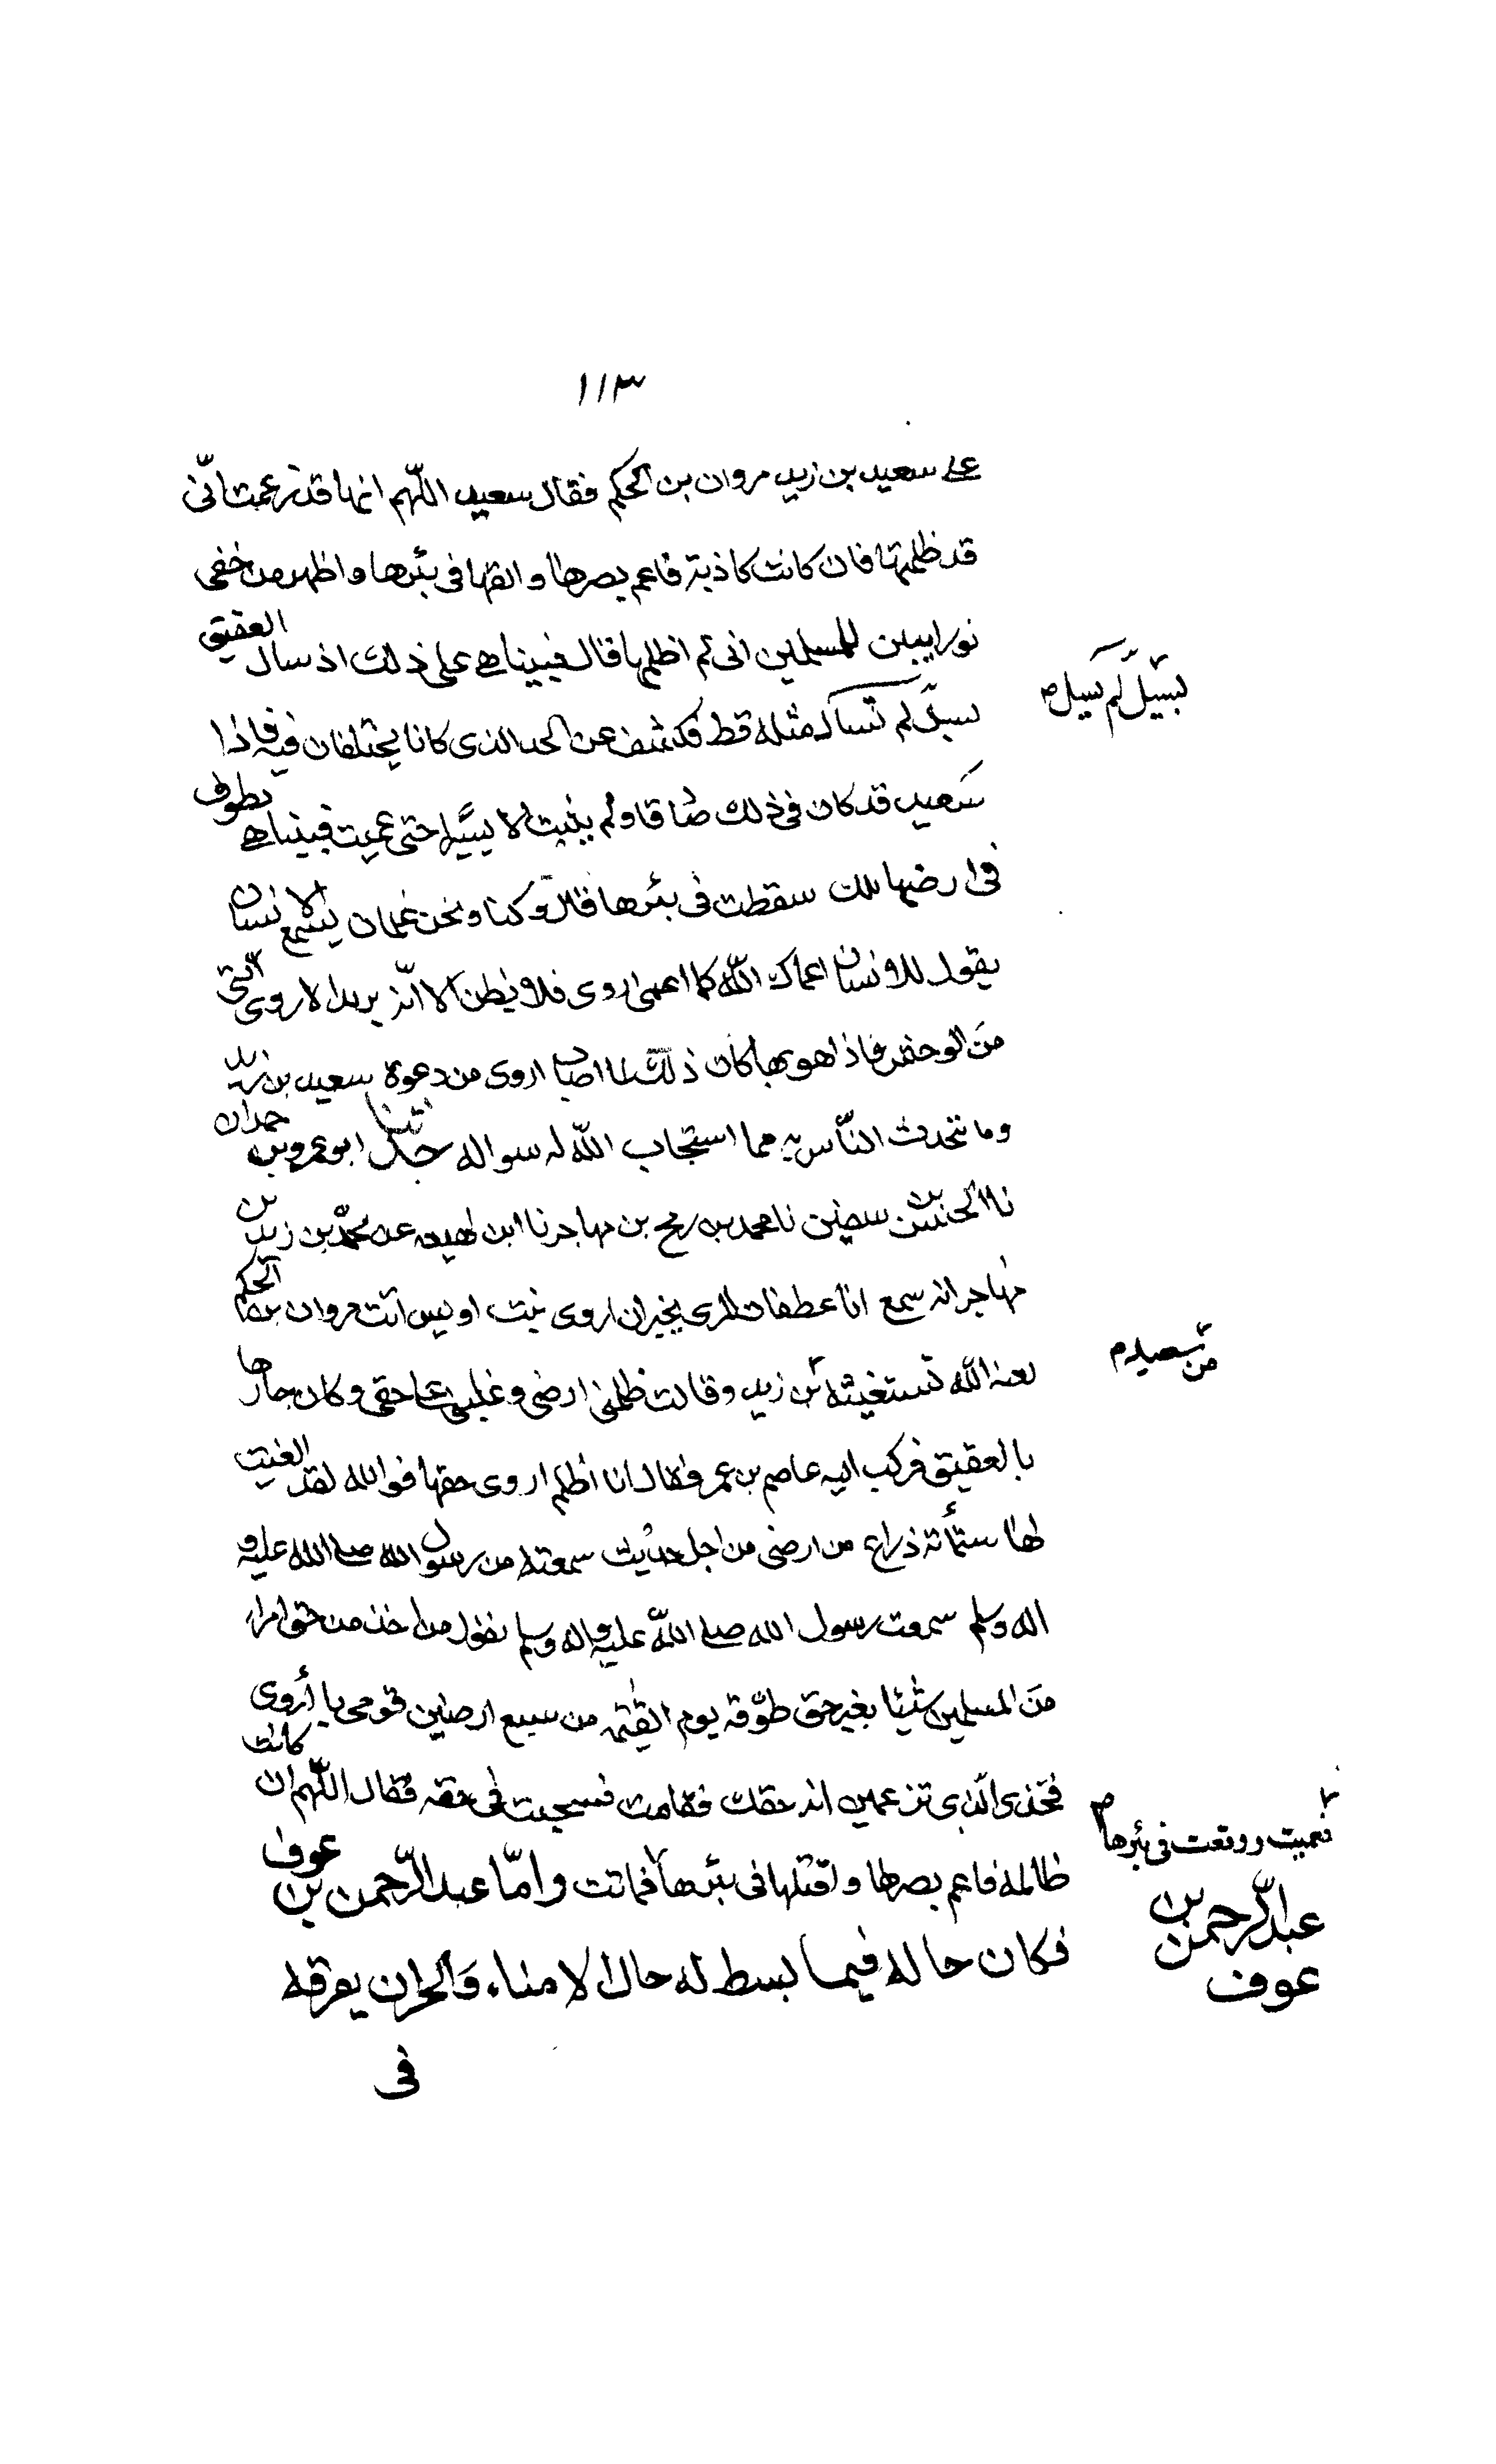 ١١٣
على سعيد بن زيد مروان بن الحكم فقال سعيد اللّهم انها قد زعمت انّى
قد ظلمتها فان كانت كاذبة فاعم بصرها والقها فى بئرها واظهر من حقى
نورا يبين للمسلمين انى لم اظلمها قال فبينا هى على ذلك اذ سال العقيق
بسيل لم يسل مثله قط فكشف عن الحد الذى كانا يختلفان فيه فاذا
بسيل لم يسيل م
سعيد قد كان فى ذلك صادقا ولم يلبث الا يسيرا حتى عميت فبينا هى تطوف
فى ارضها تلك سقطت فى بئرها قال وكنا ونحن غلمان نسمع الانسان
يقول للانسان اعماك اللّه كما اعمى اروى فلا يظن الا انّه يريد الاروى التى
من الوحش فاذا هو بها كان ذلك لما اصاب اروى من دعوة سعيد بن زيد
وما تتحدث النّاس به مما استجاب اللّه له سواله حدثنا ابو عمرو بن حمدان
نا الحسن بن سفين نا محمد بن رمح بن مهاجر نا ابن لهيعه عن محمّد بن زيد بن
مهاجر انه سمع ابا عطفان المرى يخبر ان اروى بنت اويس اتت مروان بن الحكم
لعنه اللّه تستغيثه من زيد وقالت ظلمنى ارضى وغلبنى على حقى وكان جارها
من سعيد م
بالعقيق فركب اليه عاصم بن عمر فقال انا اظلم اروى حقها فوالله لقد القيت
لها ستمأئة ذراع من ارضى من اجل حديث سمعته من رسول الله صلى الله عليه و
اله وسلم سمعت رسول الله صلى اللّه عليه واله وسلم يقول من اخذ من حق امرا
من المسلمين شيئا بغير حق طوّقه يوم القيٰمة من سبع ارضين قومى يا أروى
فخذى الّذى تزعمين انه حقك فقامت فسحبت فى حقه فقال اللّهم ان كانت
ظالمة فاعم بصرها واقتلها فى بئرها فماتت وامّا عبد الرّحمن بن عوف
فعميت ووقعت فى بئرها م
عبد الرّحمن بن عوف
فكان حاله فيما بسط له حال الامناء والخزان يفرقه
فى